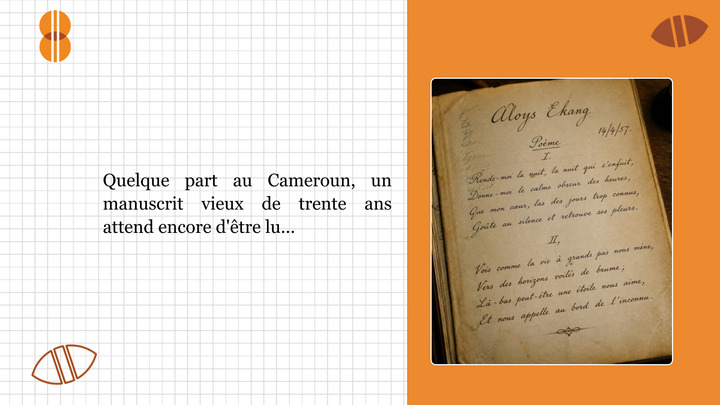 Quelque part au Cameroun, un
manuscrit vieux de trente ans
attend encore d'être lu...
Aloys Ekang
14/4/57.
Poème
I
Rends-moi la nuit, la nuit qui s'enfuit,
Donne-moi le calme obscur des heures,
Que mon cœur, las des jours trop connus,
Goûte au silence et retrouve ses pleurs.
II,
Vois comme la vie à grands pas nous mène,
Vers des horizons voilés de brume;
Là-bas peut-être une étoile nous aime,
Et nous appelle au bord de l'inconnu.